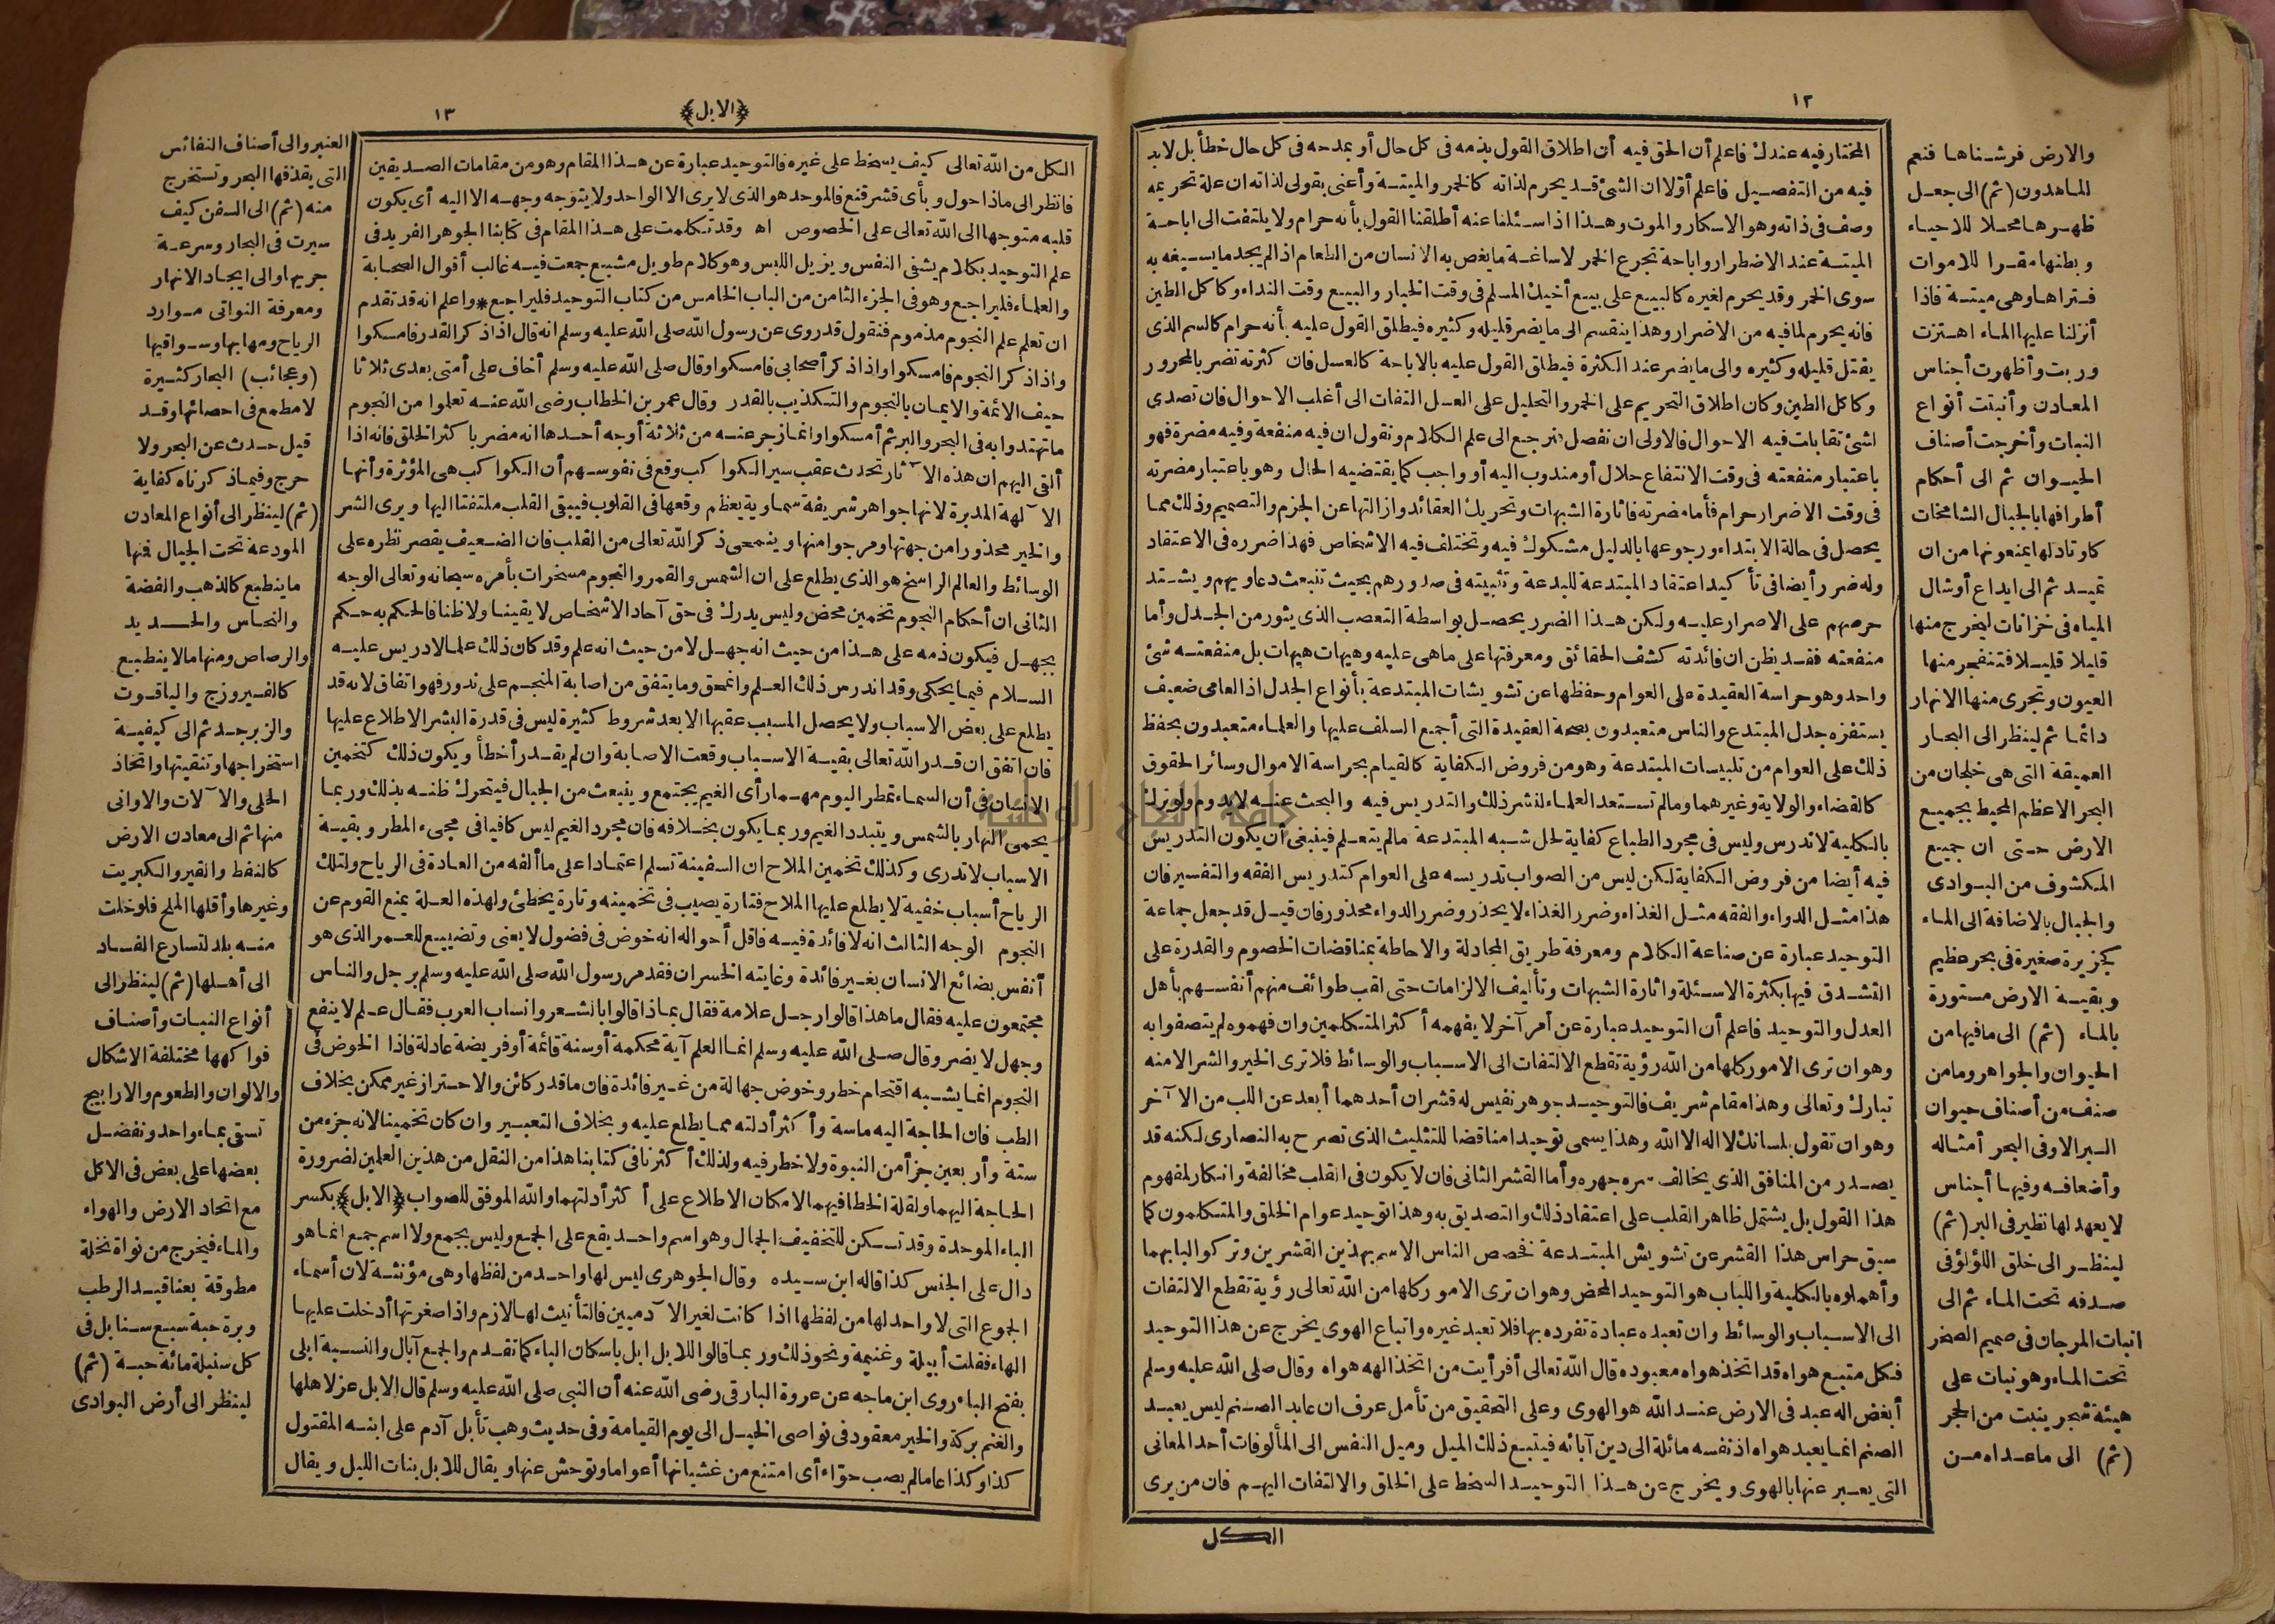 ١٢
المختار فيه عندك فاعلم أن الحق فيه أن اطلاق القول بذمه فى كل حال أو بمدحه فى كل حال خطأ بل لابد
فيه من التفصيل فاعلم أولا ان الشئ قد يحرم لذاته كالخمر والميتة وأعنى بقولى لذاته ان علة تحريمه
وصف فى ذاته وهو الاسكار والموت وهذا اذا سئلنا عنه أطلقنا القول بأنه حرام ولا يلتفت الى اباحة
الميتة عند الاضطرار واباحة تجرع الخمر لاساغة ما يغص به الانسان من الطعام اذا لم يجد ما يسيغه به
سوى الخمر وقد يحرم لغيره كالبيع على بيع أخيك المسلم فى وقت الخيار والبيع وقت النداء وكأكل الطين
فانه يحرم لما فيه من الاضرار وهذا ينقسم الى ما يضر قليله وكثيره فيطلق القول عليه بأنه حرام كالسم الذى
يقتل قليله وكثيره والى ما يضر عند الكثرة فيطلق القول عليه بالاباحة كالعسل فان كثرته تضر بالمحرور
وكاكل الطين وكان اطلاق التحريم على الخمر والتحليل على العسل التفات الى أغلب الاحوال فان تصدى
لشئ تقابلت فيه الاحوال فالاولى ان نفصل فنرجع الى علم الكلام ونقول ان فيه منفعة وفيه مضرة فهو
باعتبار منفعته فى وقت الانتفاع حلال أو مندوب اليه أو واجب كما يقتضيه الحال وهو باعتبار مضرته
فى وقت الاضرار حرام فأما مضرته فاثارة الشبهات وتحريك العقائد وازالتها عن الجزم والتصميم وذلك مما
يحصل فى حالة الابتداء ورجوعها بالدليل مشكوك فيه وتختلف فيه الاشخاص فهذا ضرره فى الاعتقاد
وله ضرر أيضا فى تأكيد اعتقاد المبتدعة للبدعة وتثبيته فى صدورهم بحيث تنبعث دعاويهم ويشتد
حرصهم على الاصرار عليه ولكن هذا الضرر يحصل بواسطة التعصب الذى يثور من الجدل وأما
منفعته فقد يظن ان فائدته كشف الحقائق ومعرفتها على ماهى عليه وهيهات هيهات بل منفعته شئ
واحد وهو حراسة العقيدة على العوام وحفظها عن تشويشات المبتدعة بأنواع الجدل اذ العامى ضعيف
يستفزه جدل المبتدع والناس متعبدون بصحة العقيدة التى أجمع السلف عليها والعلماء متعبدون بحفظ
ذلك على العوام من تلبيسات المبتدعة وهو من فروض الكفاية كالقيام بحراسة الاموال وسائر الحقوق
كالقضاء والولاية وغيرهما ومالم تستعد العلماء لنشر ذلك والتدريس فيه والبحث عنه لا يدوم ولو ترك
بالكلية لاندرس وليس فى مجرد الطباع كفاية لحل شبه المبتدعة مالم يتعلم فينبغى أن يكون التدريس
فيه أيضا من فروض الكفاية لكن ليس من الصواب تدريسه على العوام كتدريس الفقه والتفسير فان
هذا مثل الدواء والفقه مثل الغذاء وضرر الغذاء لا يحذر وضرر الدواء محذور فان قيل قد جعل جماعة
التوحيد عبارة عن صناعة الكلام ومعرفة طريق المجادلة والاحاطة بمناقضات الخصوم والقدرة على
التشدق فيها بكثرة الاسئلة واثارة الشبهات وتأليف الالزامات حتى لقب طوائف منهم أنفسهم بأهل
العدل والتوحيد فاعلم أن التوحيد عبارة عن أمر آخر لا يفهمه أكثر المتكلمين وان فهموه لم يتصفوا به
وهو ان ترى الامور كلها من الله رؤية تقطع الالتفات الى الاسباب والوسائط فلا ترى الخير والشر الا منه
تبارك وتعالى وهذا مقام شريف فالتوحيد جوهر نفيس له قشران أحدهما أبعد عن اللب من الآخر
وهو ان تقول بلسانك لا اله الا الله وهذا يسمى توحيدا مناقضا للتثليث الذى تصرح به النصارى لكنه قد
يصدر من المنافق الذى يخالف سره جهره وأما القشر الثانى فان لا يكون فى القلب مخالفة وانكار لمفهوم
هذا القول بل يشتمل ظاهر القلب على اعتقاد ذلك والتصديق به وهذا توحيد عوام الخلق والمتكلمون كما
سبق حراس هذا القشر عن تشويش المبتدعة فخصص الناس الاسم بهذين القشرين وتركوا لبابهما
وأهملوه بالكلية واللباب هو التوحيد المحض وهو ان ترى الامور كلها من الله تعالى رؤية تقطع الالتفات
الى الاسباب والوسائط وان تعبده عبادة تفرده بها فلا تعبد غيره واتباع الهوى يخرج عن هذا التوحيد
فكل متبع هواه قد اتخذ هواه معبوده قال الله تعالى أفرأيت من اتخذ الهه هواه وقال صلى الله عليه وسلم
أبغض اله عبد فى الارض عند الله هو الهوى وعلى التحقيق من تأمل عرف ان عابد الصنم ليس يعبد
الصنم انما يعبد هواه اذ نفسه مائلة الى دين آبائه فيتبع ذلك الميل وميل النفس الى المألوفات أحد المعانى
التى يعبر عنها بالهوى ويخرج عن هذا التوحيد السخط على الخلق والالتفات اليهم فان من يرى
الكل
والارض فرشناها فنعم
الماهدون (ثم) الى جعل
ظهرها محلا للاحياء
وبطنها مقرا للاموات
فتراها وهى ميتة فاذا
أنزلنا عليها الماء اهتزت
وربت وأظهرت أجناس
المعادن وأنبتت أنواع
النبات وأخرجت أصناف
الحيوان ثم الى أحكام
أطرافها بالجبال الشامخات
كاوتاد لها يمنعونها من ان
تميد ثم الى ايداع أوشال
المياه فى خزانات ليخرج منها
قليلا قليلا فتنفجر منها
العيون وتجرى منها الانهار
دائما ثم لينظر الى البحار
العميقة التى هى خلجان من
البحر الاعظم المحيط بجميع
الارض حتى ان جميع
المكشوف من البوادى
والجبال بالاضافة الى الماء
كجزيرة صغيرة فى بحر عظيم
وبقية الارض مستورة
بالماء (ثم) الى مافيها من
الحيوان والجواهر ومامن
صنف من أصناف حيوان
البر الا وفى البحر أمثاله
وأضعافه وفيها أجناس
لا يعهد لها نظير فى البر (ثم)
لينظر الى خلق اللؤلؤ فى
صدفه تحت الماء ثم الى
انبات المرجان فى صميم الصخر
تحت الماء وهو نبات على
هيئة شجر ينبت من الحجر
(ثم) الى ماعداه من
١٣
﴿الابل﴾
الكل من الله تعالى كيف يسخط على غيره فالتوحيد عبارة عن هذا المقام وهو من مقامات الصديقين
فانظر الى ماذا حول وبأى قشر قنع فالموحد هو الذى لا يرى الا الواحد ولا يتوجه وجهه الا اليه أى يكون
قلبه متوجها الى الله تعالى على الخصوص اه وقد تكلمت على هذا المقام فى كتابنا الجوهر الفريد فى
علم التوحيد بكلام يشفى النفس ويزيل اللبس وهو كلام طويل مشبع جمعت فيه غالب أقوال الصحابة
والعلماء فليراجع وهو فى الجزء الثامن من الباب الخامس من كتاب التوحيد فليراجع * واعلم انه قد تقدم
ان تعلم علم النجوم مذموم فنقول قد روى عن رسول الله صلى الله عليه وسلم انه قال اذا ذكر القدر فامسكوا
واذا ذكر النجوم فامسكوا واذا ذكر أصحابى فامسكوا وقال صلى الله عليه وسلم أخاف على أمتى بعدى ثلاثا
حيف الائمة والايمان بالنجوم والتكذيب بالقدر وقال عمر بن الخطاب رضى الله عنه تعلموا من النجوم
ما تهتدوا به فى البحر والبر ثم أمسكوا وانما زجر عنه من ثلاثة أوجه أحدها انه مضر باكثر الخلق فانه اذا
ألقى اليهم ان هذه الآثار تحدث عقب سير الكواكب وقع فى نفوسهم أن الكواكب هى المؤثرة وأنها
الآلهة المدبرة لانها جواهر شريفة سماوية يعظم وقعها فى القلوب فيبقى القلب ملتفتا اليها ويرى الشر
والخير محذورا من جهتها ومرجوا منها وينمحى ذكر الله تعالى من القلب فان الضعيف يقصر نظره على
الوسائط والعالم الراسخ هو الذى يطلع على ان الشمس والقمر والنجوم مسخرات بأمره سبحانه وتعالى الوجه
الثانى ان أحكام النجوم تخمين محض وليس يدرك فى حق آحاد الاشخاص لا يقينا ولا ظنا فالحكم به حكم
بجهل فيكون ذمه على هذا من حيث انه جهل لا من حيث انه علم وقد كان ذلك علما لادريس عليه
السلام فيما يحكى وقد اندرس ذلك العلم وانمحق وما يتفق من اصابة المنجم على ندور فهو اتفاق لانه قد
يطلع على بعض الاسباب ولا يحصل المسبب عقبها الا بعد شروط كثيرة ليس فى قدرة البشر الاطلاع عليها
فان اتفق ان قدر الله تعالى بقية الاسباب وقعت الاصابة وان لم يقدر أخطأ ويكون ذلك كتخمين
الانسان فى أن السماء تمطر اليوم مهما رأى الغيم يجتمع وينبعث من الجبال فيتحرك ظنه بذلك وربما
يحمى النهار بالشمس ويتبدد الغيم وربما يكون بخلافه فان مجرد الغيم ليس كافيا فى مجىء المطر وبقية
الاسباب لا تدرى وكذلك تخمين الملاح ان السفينة تسلم اعتمادا على ما ألفه من العادة فى الرياح ولتلك
الرياح أسباب خفية لا يطلع عليها الملاح فتارة يصيب فى تخمينه وتارة يخطئ ولهذه العلة يمنع القوم عن
النجوم الوجه الثالث انه لا فائدة فيه فاقل أحواله انه خوض فى فضول لا يعنى وتضييع للعمر الذى هو
أنفس بضائع الانسان بغير فائدة وغايته الخسران فقد مر رسول الله صلى الله عليه وسلم برجل والناس
مجتمعون عليه فقال ما هذا قالوا رجل علامة فقال بماذا قالوا بالشعر وانساب العرب فقال علم لا ينفع
وجهل لا يضر وقال صلى الله عليه وسلم انما العلم آية محكمة أو سنة قائمة أو فريضة عادلة فاذا الخوض فى
النجوم انما يشبه اقتحام خطر وخوض جهالة من غير فائدة فان ما قدر كائن والاحتراز غير ممكن بخلاف
الطب فان الحاجة اليه ماسة وأكثر أدلته مما يطلع عليه وبخلاف التعبير وان كان تخمينا لانه جزء من
ستة وأربعين جزأ من النبوة ولا خطر فيه ولذلك أكثرنا فى كتابنا هذا من النقل من هذين العلمين لضرورة
الحاجة اليهما ولقلة الخطا فيهما لامكان الاطلاع على أكثر أدلتهما والله الموفق للصواب ﴿الابل﴾ بكسر
الباء الموحدة وقد تسكن للتخفيف الجمال وهو اسم واحد يقع على الجمع وليس بجمع ولا اسم جمع انما هو
دال على الجنس كذا قاله ابن سيده وقال الجوهرى ليس لها واحد من لفظها وهى مؤنثة لان أسماء
الجموع التى لا واحد لها من لفظها اذا كانت لغير الآدميين فالتأنيث لها لازم واذا صغرتها أدخلت عليها
الهاء فقلت أبيلة وغنيمة ونحو ذلك وربما قالوا للابل ابل باسكان الباء كما تقدم والجمع آبال والنسبة ابلى
بفتح الباء روى ابن ماجه عن عروة البارقى رضى الله عنه أن النبى صلى الله عليه وسلم قال الابل عز لاهلها
والغنم بركة والخير معقود فى نواصى الخيل الى يوم القيامة وفى حديث وهب تأبل آدم على ابنه المقتول
كذا وكذا عاما لم يصب حوّاء أى امتنع من غشيانها أعواما وتوحش عنها ويقال للابل بنات الليل ويقال
العنبر والى أصناف النفائس
التى يقذفها البحر وتستخرج
منه (ثم) الى السفن كيف
سيرت فى البحار وسرعة
جريها والى ايجاد الانهار
ومعرفة النواتى موارد
الرياح ومهابها وسواقيها
(وعجائب) البحار كثيرة
لا مطمع فى احصائها وقد
قيل حدث عن البحر ولا
حرج وفيما ذكرناه كفاية
(ثم) لينظر الى أنواع المعادن
المودعة تحت الجبال فمنها
ما ينطبع كالذهب والفضة
والنحاس والحديد
والرصاص ومنها مالا ينطبع
كالفيروزج والياقوت
والزبرجد ثم الى كيفية
استخراجها وتنقيتها واتخاذ
الحلى والآلات والاوانى
منها ثم الى معادن الارض
كالنفط والقير والكبريت
وغيرها وأقلها الملح فلو خلت
منه بلد لتسارع الفساد
الى أهلها (ثم) لينظر الى
أنواع النبات وأصناف
فواكهها مختلفة الاشكال
والالوان والطعوم والاراييج
تسقى بماء واحد ونفضل
بعضها على بعض فى الاكل
مع اتحاد الارض والهواء
والماء فيخرج من نواة نخلة
مطوقة بعناقيد الرطب
وبرة حبة سبع سنابل فى
كل سنبلة مائه حبة (ثم)
لينظر الى أرض البوادى
جامعة النجاح الوطنية